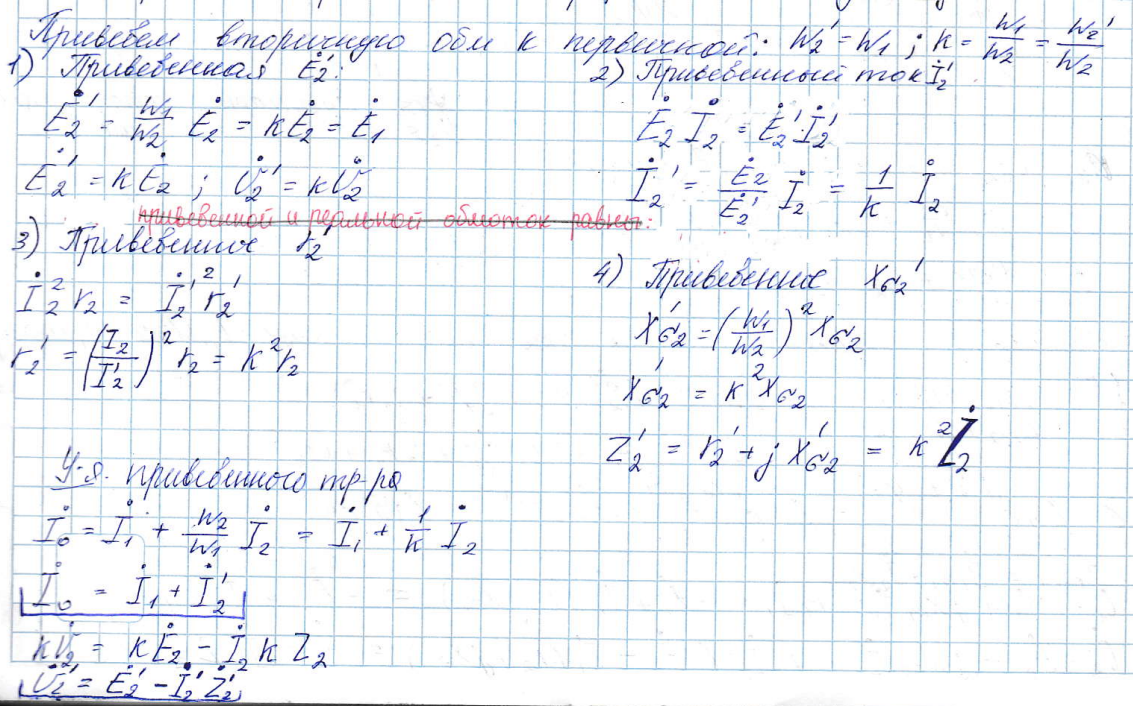 Приведем вторичную обм к первичной: W₂' = W₁ ; k = W₁/W₂ = W₂'/W₂
1) Приведенная Ė₂':
Ė₂' = W₁/W₂ Ė₂ = kĖ₂ = Ė₁
Ė₂' = kĖ₂ ; U̇₂' = kU̇₂
приведенной и реальной обмоток равны:
2) Приведенный ток İ₂'
Ė₂ İ₂ = Ė₂' İ₂'
İ₂' = Ė₂/Ė₂' İ₂ = 1/k İ₂
3) Приведенное r₂'
İ₂² r₂ = İ₂'² r₂'
r₂' = (I₂/I₂')² r₂ = k² r₂
4) Приведенное xσ₂'
xσ₂' = (W₁/W₂)² xσ₂
xσ₂' = k² xσ₂
Z₂' = r₂' + j xσ₂' = k² Ż₂
У-я. приведенного тр-ра
İ₀ = İ₁ + W₂/W₁ İ₂ = İ₁ + 1/k İ₂
İ₀ = İ₁ + İ₂'
kU̇₂ = kĖ₂ - İ₂ k Z₂
U̇₂' = Ė₂' - İ₂' Ż₂'